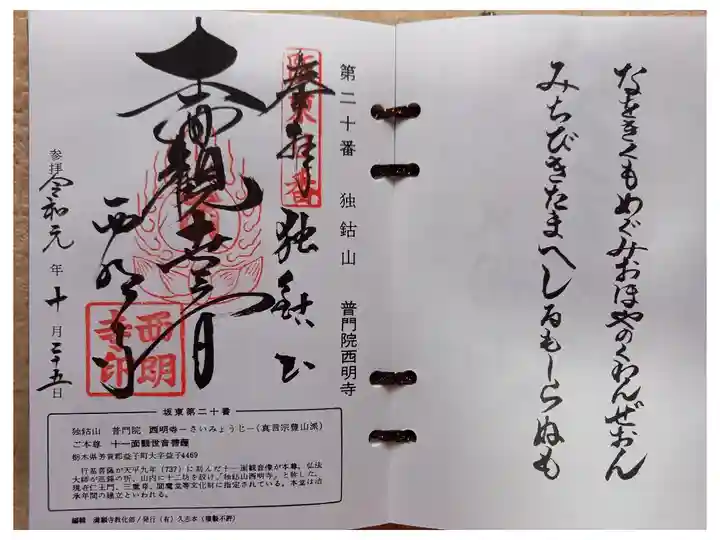 なをきくもめぐみおほやのくわんぜおん
みちびきたまへしるもしらぬも
第二十番 独鈷山 普門院西明寺
奉拝 独鈷山
西明寺
参拝 令和元年十月二十五日
西明寺印
坂東第二十番
独鈷山 普門院 西明寺-さいみょうじ-(真言宗豊山派)
ご本尊 十一面観世音菩薩
栃木県芳賀郡益子町大字益子4469
行基菩薩が天平九年(737)に刻んだ十一面観音像が本尊。弘法
大師が巡錫の折、山内に十二坊を設け、「独鈷山西明寺」と称した。
現在仁王門、三重塔、閻魔堂等文化財に指定されている。本堂は治
承年間の建立といわれる。
編輯 満願寺教化部/発行(有)久志本(複製不許)